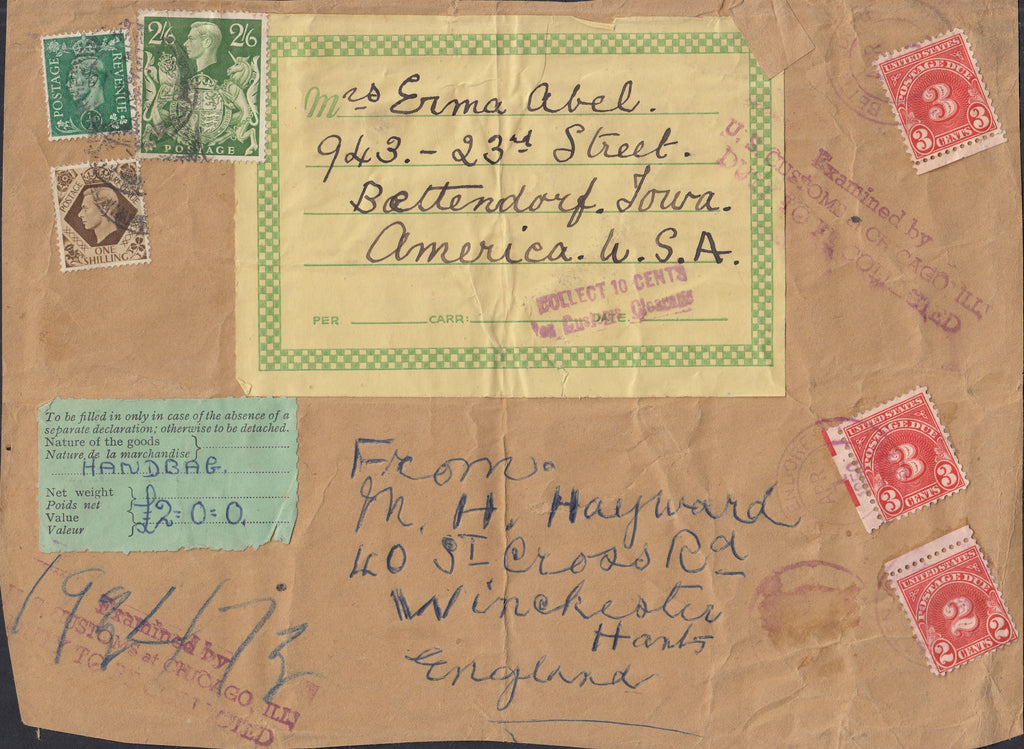 POSTAGE REVENUE
2/6 2/6
POSTAGE
POSTAGE REVENUE
ONE
SHILLING
Mrs Erma Abel.
943.-23rd Street.
Bettendorf. Iowa.
America. U.S.A.
COLLECT 10 CENTS
for Customs Clearance
PER CARR: DATE
UNITED STATES
POSTAGE DUE
3
3 CENTS 3
Examined by
U.S. CUSTOMS at CHICAGO, ILL.
DUTY TO BE COLLECTED
To be filled in only in case of the absence of a
separate declaration; otherwise to be detached.
Nature of the goods
Nature de la marchandise
HANDBAG.
Net weight
Poids net
Value
Valeur
£2-0-0.
From.
M. H. Hayward
40 ST Cross Rd
Winchester
Hants
England
UNITED STATES
POSTAGE DUE
3
3 CENTS 3
UNITED STATES
POSTAGE DUE
2
2 CENTS 2
Examined by
CUSTOMS at CHICAGO, ILL
TO BE COLLECTED